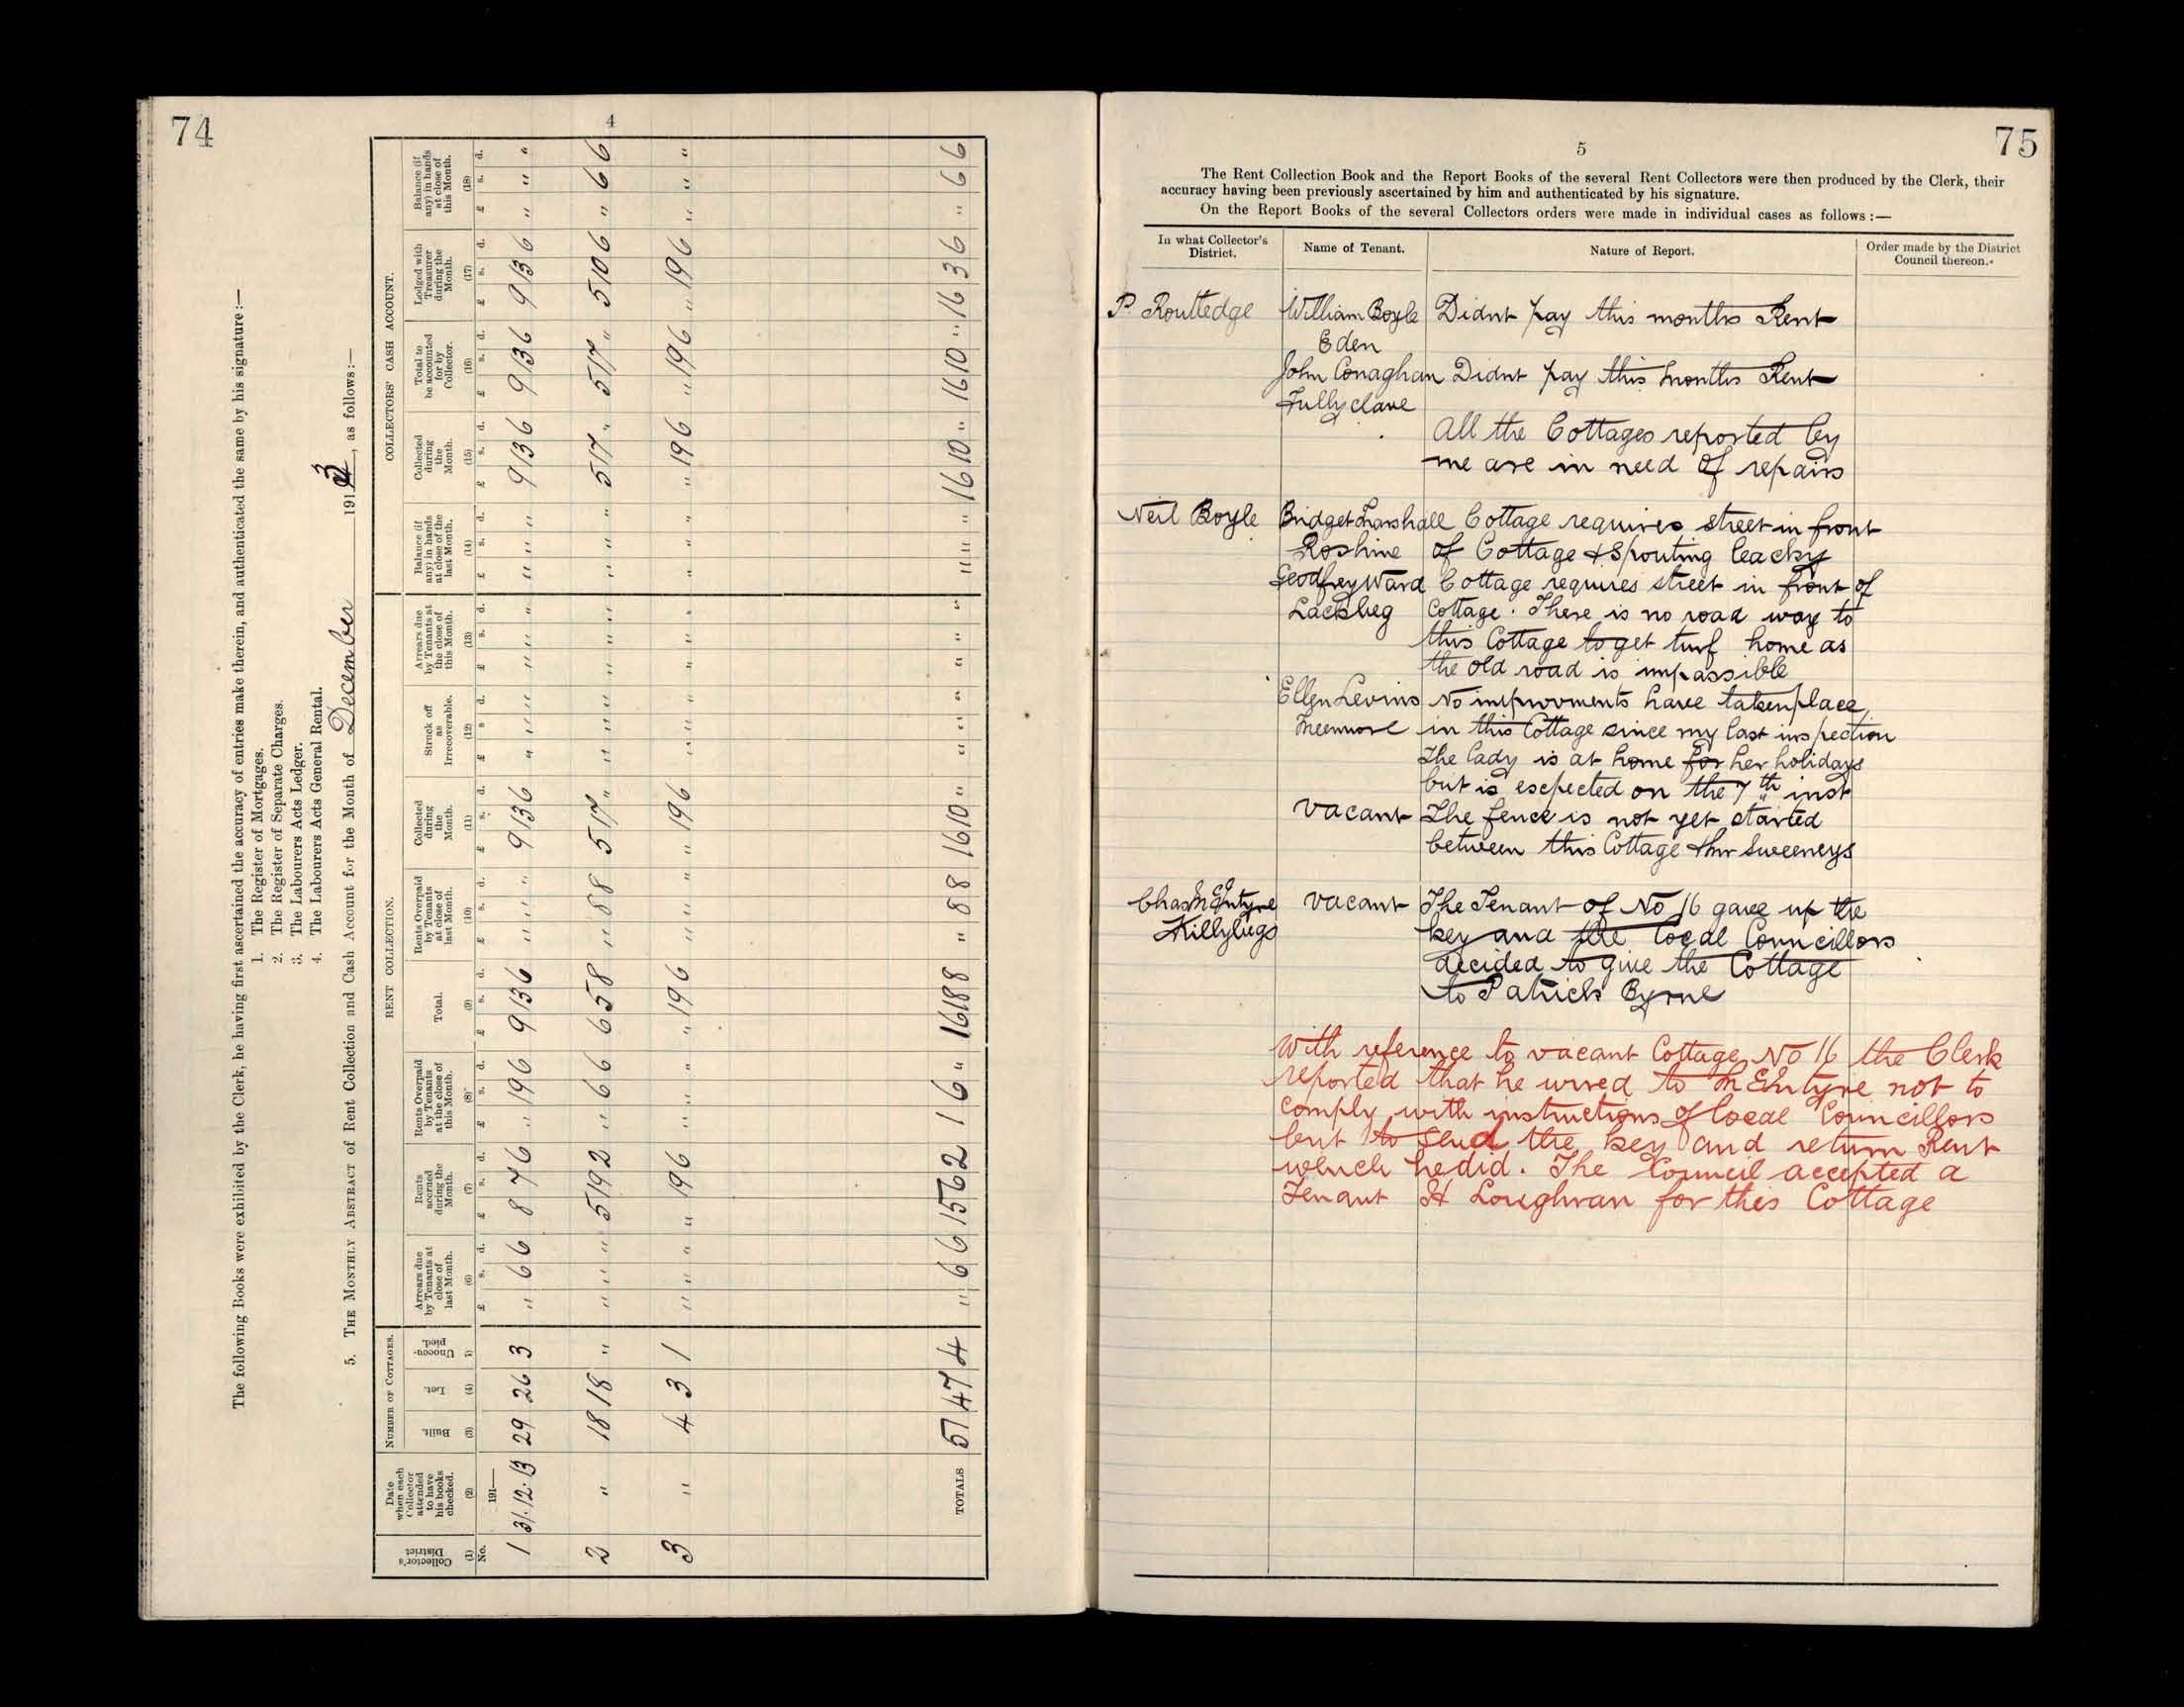 74
4
The following Books were exhibited by the Clerk, he having first ascertained the accuracy of entries make therein, and authenticated the same by his signature :—
1. The Register of Mortgages.
2. The Register of Separate Charges.
3. The Labourers Acts Ledger.
4. The Labourers Acts General Rental.
5. THE MONTHLY ABSTRACT of Rent Collection and Cash Account for the Month of December 1913, as follows:—
NUMBER OF COTTAGES. RENT COLLECTION. COLLECTORS' CASH ACCOUNT.
Collector's District (1) No.
Date when each Collector attended to have his books checked. (2) 191—
Built. (3)
Let. (4)
Unoccupied. 5)
Arrears due by Tenants at close of last Month. (6) £ s. d.
Rents accrued during the Month. (7) £ s. d.
Rents Overpaid by Tenants at the close of this Month. (8) £ s. d.
Total. (9) £ s. d.
Rents Overpaid by Tenants at close of last Month. (10) £ s. d.
Collected during the Month. (11) £ s. d.
Struck off as Irrecoverable. (12) £ s d.
Arrears due by Tenants at the close of this Month. (13) £ s. d.
Balance (if any) in hands at close of the last Month. (14) £ s. d.
Collected during the Month. (15) £ s. d.
Total to be accounted for by Collector. (16) £ s. d.
Lodged with Treasurer during the Month. (17) £ s. d.
Balance (if any) in hands at close of this Month. (18) £ s. d.
1 31.12.13 29 26 3 " 6 6 8 7 6 " 19 6 9 13 6 " " " 9 13 6 " " " " " " " " " 9 13 6 9 13 6 9 13 6 " " "
2 " 18 18 " " " " 5 19 2 " 6 6 6 5 8 " 8 8 5 17 " " " " " " " " " " 5 17 " 5 17 " 5 10 6 " 6 6
3 " 4 3 1 " " " " 19 6 " " " " 19 6 " " " " 19 6 " " " " " " " " " " 19 6 " 19 6 " 19 6 " " "
TOTALS 51 47 4 " 6 6 15 6 2 1 6 " 16 18 8 " 8 8 16 10 " " " " " " " " " " 16 10 " 16 10 " 16 3 6 " 6 6
75
5
The Rent Collection Book and the Report Books of the several Rent Collectors were then produced by the Clerk, their
accuracy having been previously ascertained by him and authenticated by his signature.
On the Report Books of the several Collectors orders were made in individual cases as follows :—
In what Collector's District. Name of Tenant. Nature of Report. Order made by the District Council thereon.
P. Routledge William Boyle Didnt pay this months Rent
Eden
John Conaghan Didnt pay this months Rent
Tullyclave
All the Cottages reported by
me are in need of repairs
Neil Boyle Bridget Cottage requires street in front
Roshine of Cottage & Spouting leacky
Geodfrey Ward Cottage requires street in front of
Lackbeg Cottage. There is no road way to
this Cottage to get turf home as
the old road is impassible
Ellen Levins No improvments have taken place
in this Cottage since my last inspection
The lady is at home for her holidays
but is escpected on the 7th inst
vacant The fence is not yet started
between this Cottage & Sweeneys
Chas McEntyre vacant The Tenant of No 16 gave up the
Killybegs key and the local Councillors
decided to give the Cottage
to Patrick Byrne
With reference to vacant Cottage No 16 the Clerk
reported that he wired to McEntyre not to
comply with instructions of local Councillors
but to send the key and return Rent
which he did. The Council accepted a
Tenant H Loughran for this Cottage